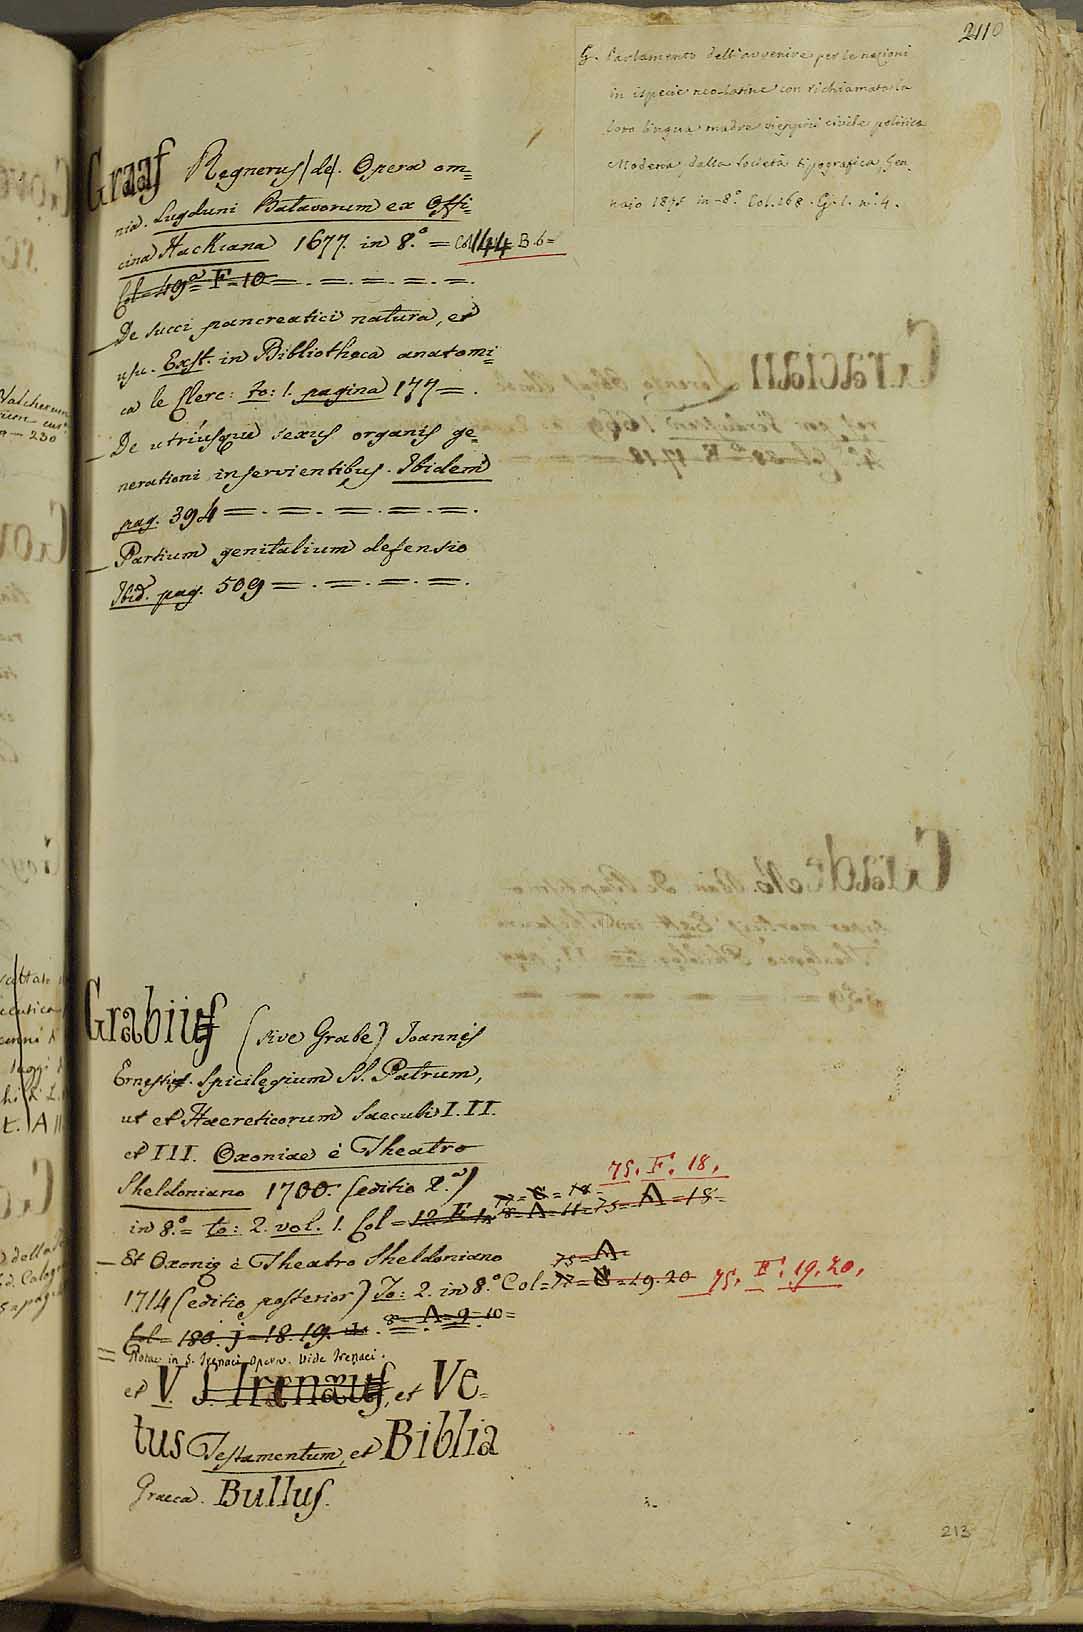 2110
G. Parlamento dell'avvenire per le nazioni
in ispecie neo-latine con richiamata la
loro lingua madre vieppiù civile politica
Modena, dalla società tipografica, Gen
naio 1875 in-8.° Col. 168. G. 1. n.° 4.
Graaf Regnerus (de). Opera om=
nia. Lugduni Batavorum ex Offi=
cina Hackiana 1677. in 8.° = Col 144 B. 6=
Col = 49ª = F = 10 = . = . = . = . = .
— De succi pancreatici natura, et
usu. Exst. in Bibliotheca anatomi=
ca le Clerc: to: 1. pagina 177 = .
— De utriusque sexus organis ge=
nerationi inservientibus. Ibidem
pag. 394 = . = . = . = . = .
— Partium genitalium defensio
Ibid. pag. 509 = . = . = . = .
Grabius (sive Grabe) Joannis
Ernesti. Spicilegium SS. Patrum,
ut et Haereticorum saeculi I. II.
et III. Oxoniae è Theatro
Sheldoniano 1700. (editio 2.ª)
75. F. 18.
in 8.° = to: 2. vol. 1. Col = 12 F. 8 = A = 11 = 75 = A = 18 =
— Et Oxonię è Theatro Sheldoniano
75 = A =
1714 (editio posterior) To: 2. in 8.° Col = = 19. 20 75. F. 19. 20.
Col = 180. j = 18. 19. 8 = A = 9. 10 =
= Notae in S. Irenaei Opera. Vide Irenaei.
et V. S. Irenaeus, et Ve=
tus Testamentum, et Biblia
Graeca. Bullus.
213